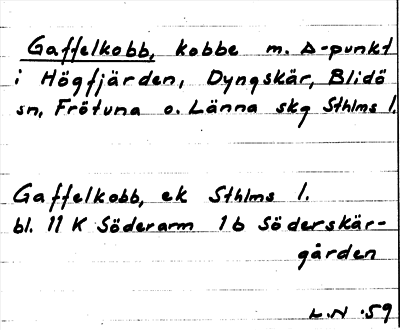 Gaffelkobb, kobbe m. Δ-punkt
i Högfjärden, Dyngskär, Blidö
sn, Frötuna o. Länna skg Sthlms l.
Gaffelkobb, ek Sthlms l.
bl. 11 K Söderarm 1b Söderskär-
gården
L.N. 59